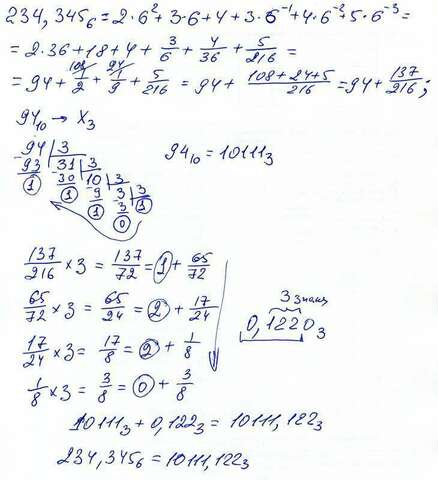 234,345₆ = 2·6² + 3·6 + 4 + 3·6⁻¹ + 4·6⁻² + 5·6⁻³ =
= 2·36 + 18 + 4 + 3/6 + 4/36 + 5/216 =
= 94 + 1/2 + 1/9 + 5/216 = 94 + (108+24+5)/216 = 94 + 137/216;
94₁₀ → X₃
94 | 3
93 31 | 3
1 30 10 | 3
1 9 3 | 3
1 3 1
0
94₁₀ = 10111₃
137/216 × 3 = 137/72 = 1 + 65/72
65/72 × 3 = 65/24 = 2 + 17/24
17/24 × 3 = 17/8 = 2 + 1/8
1/8 × 3 = 3/8 = 0 + 3/8
3 знака
0,1220₃
10111₃ + 0,122₃ = 10111,122₃
234,345₆ = 10111,122₃